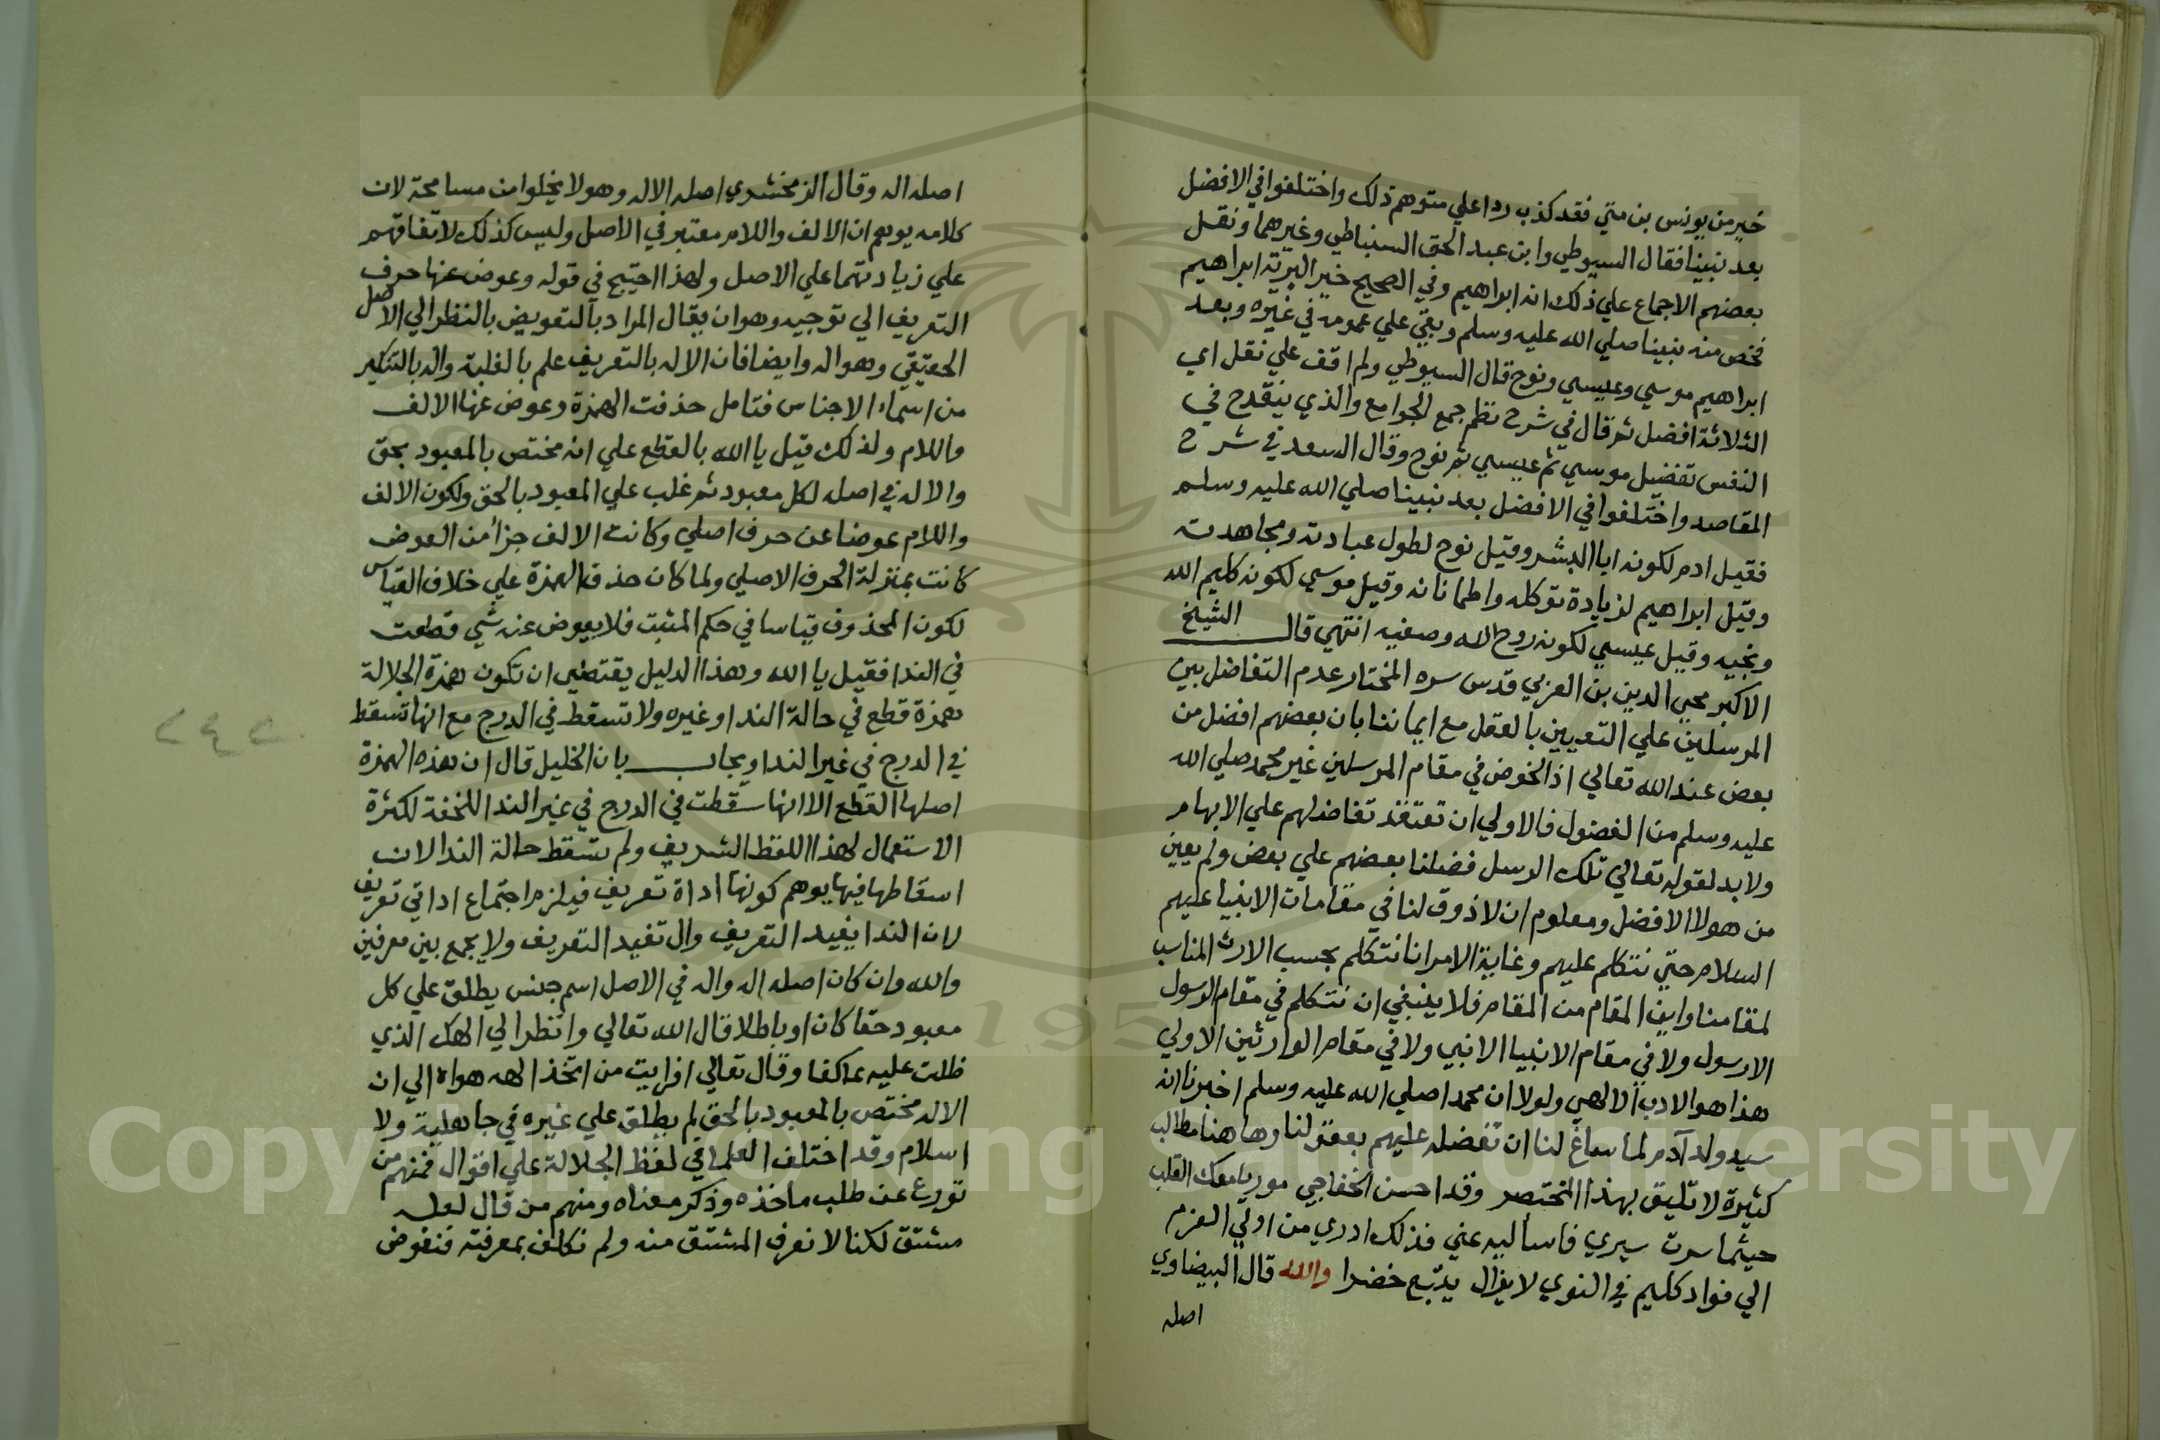 خير من يونس بن متي فقد كذب ردا علي متوهم ذلك واختلفوا في الافضل
بعد نبينا فقال السيوطي وابن عبد الحق السنباطي وغيرهما ونقل
بعضهم الاجماع علي ذلك انه ابراهيم وفي الصحيح خير البرية ابراهيم
فخص منه نبينا صلي الله عليه وسلم وبقي علي عمومه في غيره وبعد
ابراهيم موسي وعيسي ونوح قال السيوطي ولم اقف علي نقل اي
الثلاثة افضل ثم قال في شرح نظم جمع الجوامع والذي ينقدح في
النفس تفضيل موسي ثم عيسي ثم نوح وقال السعد في شرح
المقاصد واختلفوا في الافضل بعد نبينا صلي الله عليه وسلم
فقيل ادم لكونه ابا البشر وقيل نوح لطول عبادته ومجاهدته
وقيل ابراهيم لزيادة توكله واطمانانه وقيل موسي لكونه كليم الله
ونجيه وقيل عيسي لكونه روح الله وصفيه انتهي قال الشيخ
الاكبر محيي الدين بن العربي قدس سره المختار عدم التفاضل بين
المرسلين علي التعيين بالعقل مع ايماننا بان بعضهم افضل من
بعض عند الله تعالي اذ الخوض في مقام المرسلين غير محمد صلي الله
عليه وسلم من الفضول فالاولي ان تعتقد تفاضلهم علي الابهام
ولا بد لقوله تعالي تلك الرسل فضلنا بعضهم علي بعض ولم يعين
من هولا الافضل ومعلوم ان لا ذوق لنا في مقامات الانبيا عليهم
السلام حتي نتكلم عليهم وغاية الامر اننا نتكلم بحسب الارث المناسب
لمقامنا واين المقام من المقام فلا ينبغي ان نتكلم في مقام الرسول
الا رسول ولا في مقام الانبيا الا نبي ولا في مقام الوارثين الا ولي
هذا هو الادب الالهي ولولا ان محمدا صلي الله عليه وسلم اخبرنا انه
سيد ولد آدم لما ساغ لنا ان نفضله عليهم بعقولنا وهاهنا مطالب
كثيرة لا تليق بهذا المختصر وقد احسن الخفاجي موريا معك القلب
حيثما سرت سيري فاساليه عني فذلك ادري من اولي العزم
الي فواد كليم في النوي لا يزال يتبع خضرا والله قال البيضاوي
اصله
اصله اله وقال الزمخشري اصله الاله وهو لا يخلوا من مسامحة لان
كلامه يوهم ان الالف واللام معتبر في الاصل وليس كذلك لاتفاقهم
علي زيادتهما علي الاصل ولهذا احتيج في قوله وعوض عنها حرف
التعريف الي توجيه وهو ان يقال المراد بالتعويض بالنظر الي الاصل
الحقيقي وهو اله وايضا فان الاله بالتعريف علم بالغلبة واله بالتنكير
من اسماء الاجناس فتامل حذفت الهمزة وعوض عنها الالف
واللام ولذلك قيل يا الله بالقطع علي انه مختص بالمعبود بحق
والاله في اصله لكل معبود ثم غلب علي المعبود بالحق ولكون الالف
واللام عوضا عن حرف اصلي وكانت الالف جزأ من العوض
كانت بمنزلة الحرف الاصلي ولما كان حذف الهمزة علي خلاف القياس
لكون المحذوف قياسا في حكم المثبت فلا يعوض عنه شي قطعت
في الندا فقيل يا الله وهذا الدليل يقتضي ان تكون همزة الجلالة
همزة قطع في حالة الندا وغيره ولا تسقط في الدرج مع انها تسقط
في الدرج في غير الندا ويجاب بان الخليل قال ان هذه الهمزة
اصلها القطع الا انها سقطت في الدرج في غير الندا للخفة لكثرة
الاستعمال لهذا اللفظ الشريف ولم تسقط حالة الندا لان
اسقاطها فيها يوهم كونها اداة تعريف فيلزم اجتماع اداتي تعريف
لان الندا يفيد التعريف وال تفيد التعريف ولا يجمع بين معرفين
والله وان كان اصله اله واله في الاصل اسم جنس يطلق علي كل
معبود حقا كان او باطلا قال الله تعالي وانظر الي الهك الذي
ظلت عليه عاكفا وقال تعالي افرايت من اتخذ الهه هواه الي ان
الاله مختص بالمعبود بالحق لم يطلق علي غيره في جاهلية ولا
اسلام وقد اختلف العلما في لفظ الجلالة علي اقوال فمنهم من
تورع عن طلب ماخذه وذكر معناه ومنهم من قال لعله
مشتق لكنا لا نعرف المشتق منه ولم نكلف بمعرفته فنفوض
Copyright © King Saud University
195